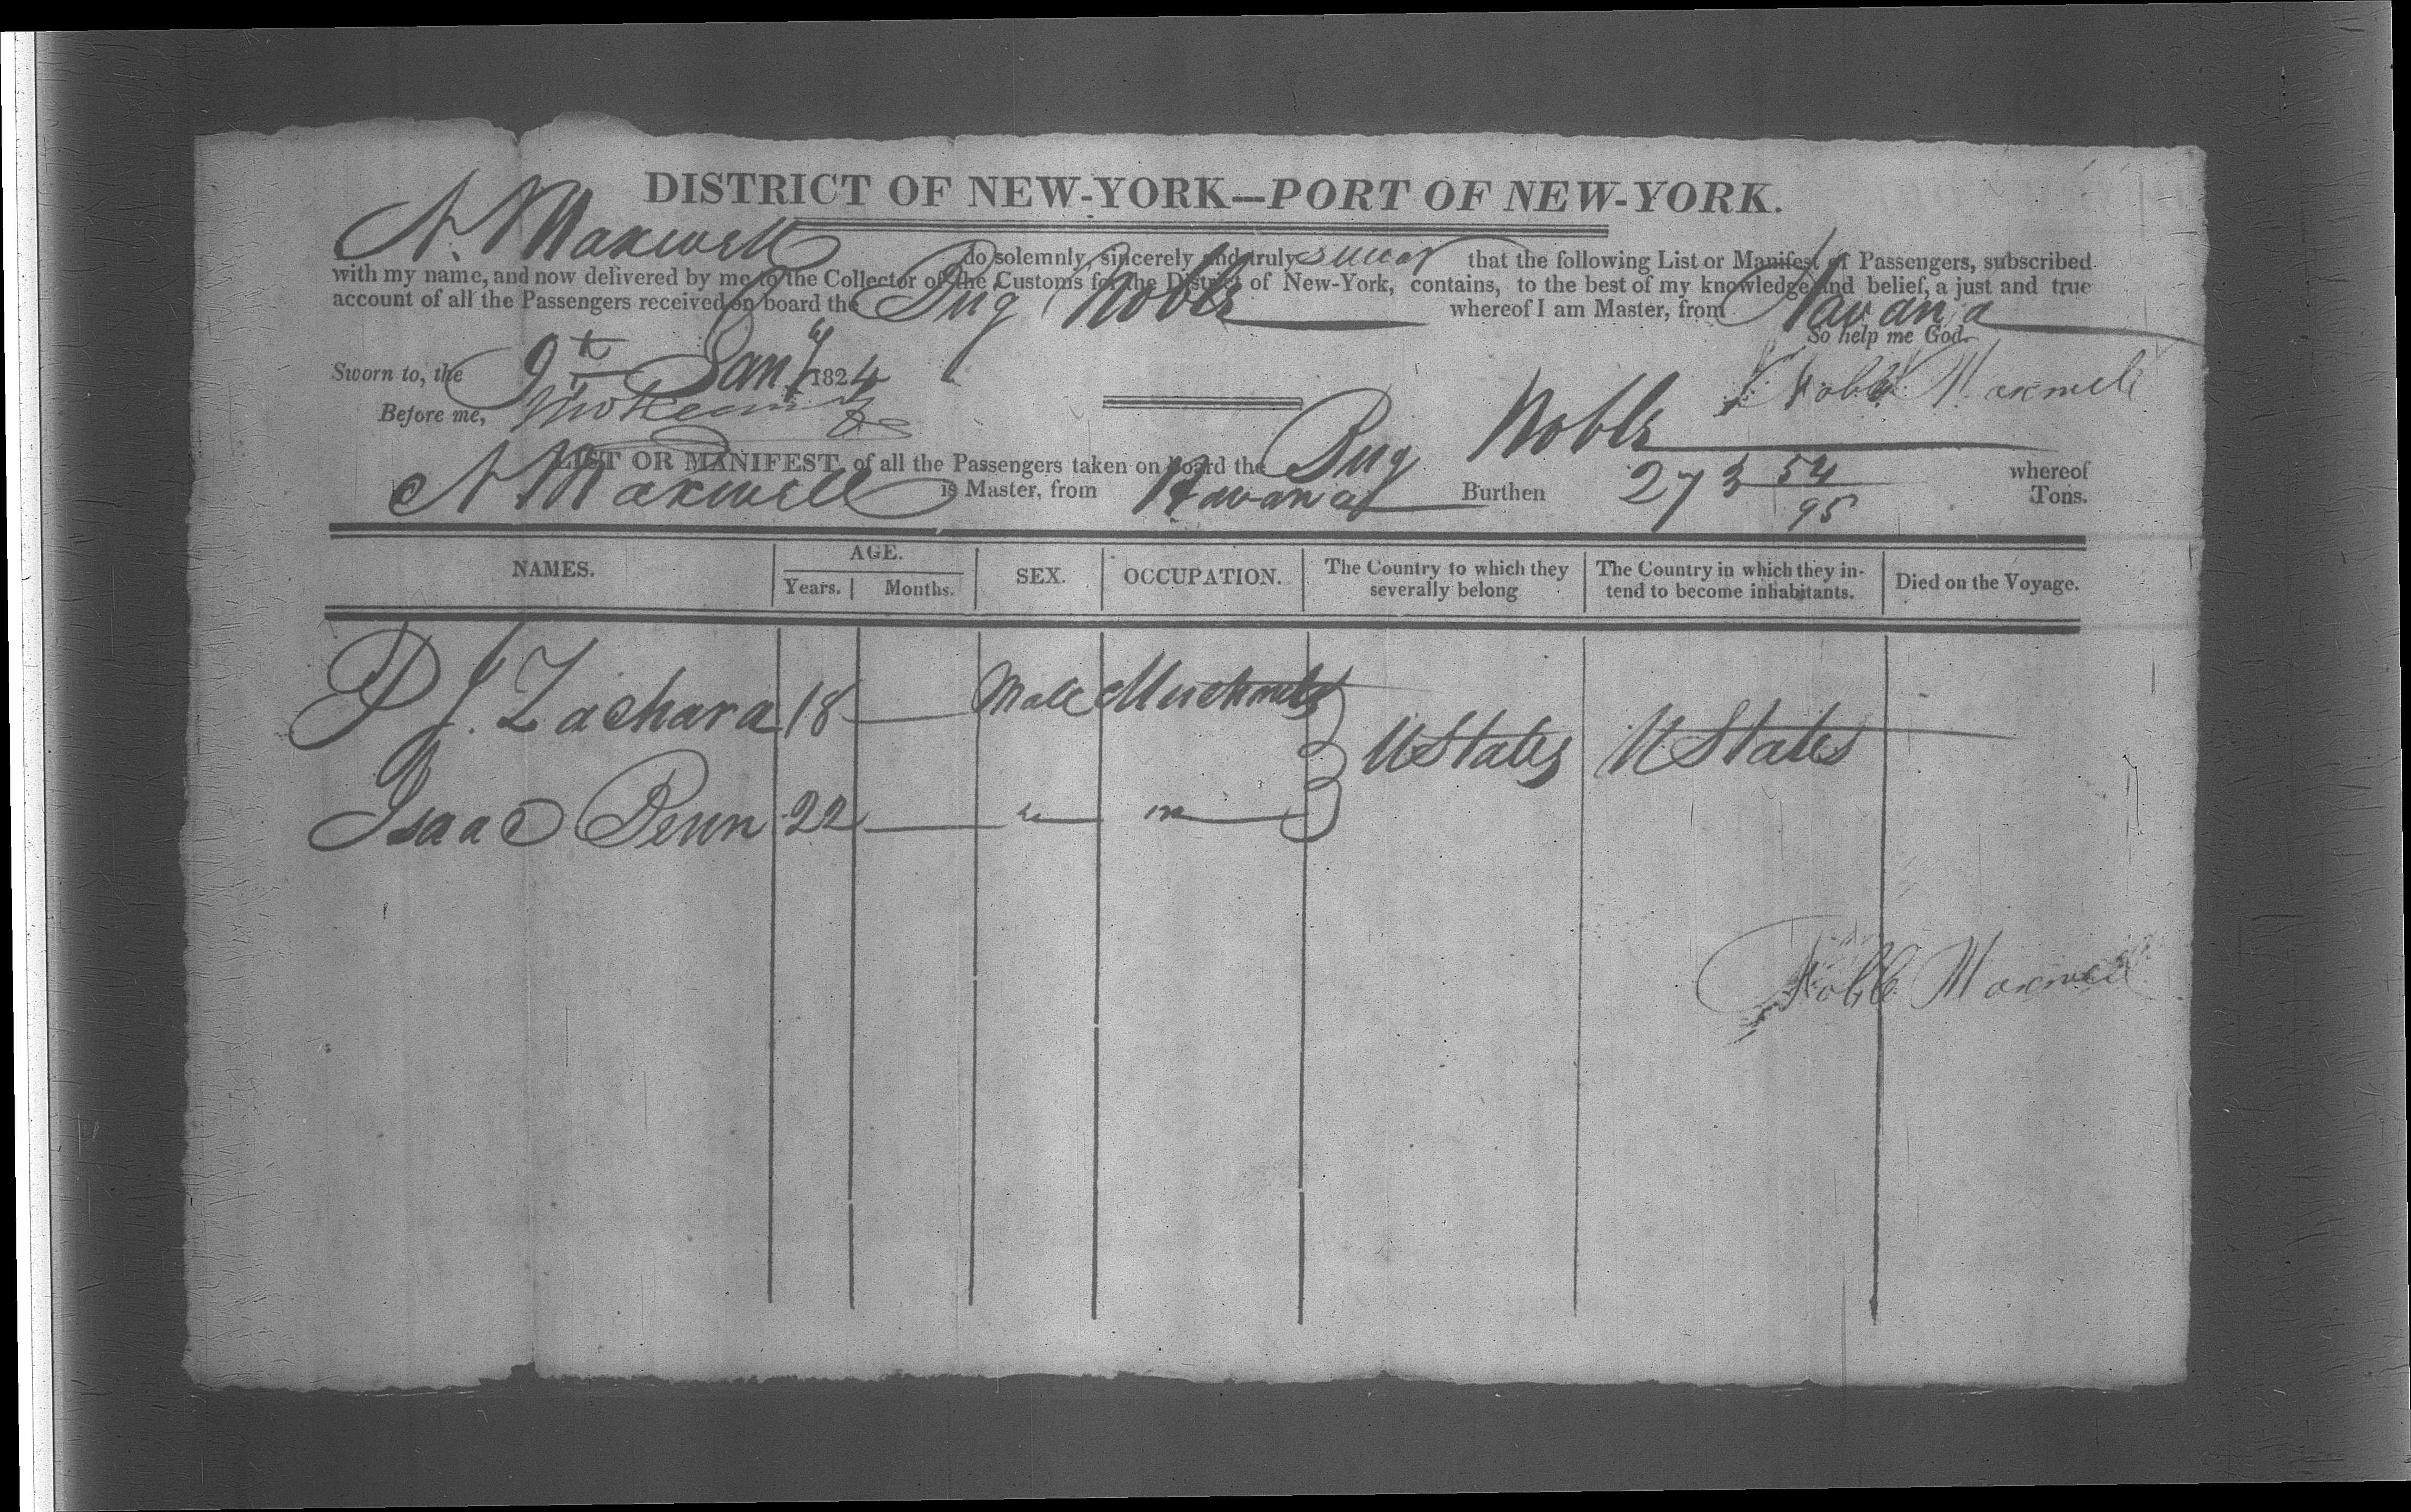 DISTRICT OF NEW-YORK—PORT OF NEW-YORK.
N. Maxwell do solemnly, sincerely and truly swear that the following List or Manifest of Passengers, subscribed
with my name, and now delivered by me to the Collector of the Customs for the District of New-York, contains, to the best of my knowledge and belief, a just and true
account of all the Passengers received on board the Brig Noble whereof I am Master, from Havana
So help me God.
Sworn to, the 9th Jany 1824
Noble Maxwell
Before me,
LIST OR MANIFEST of all the Passengers taken on board the Brig Noble whereof
N Maxwell is Master, from Havana Burthen 273 54/95 Tons.
NAMES. AGE. SEX. OCCUPATION. The Country to which they severally belong The Country in which they in-tend to become inhabitants. Died on the Voyage.
Years. Months.
P J. Zachara 18 — Male Merchants U States U States
Isaac Penn 22 — " "
Noble Maxwell